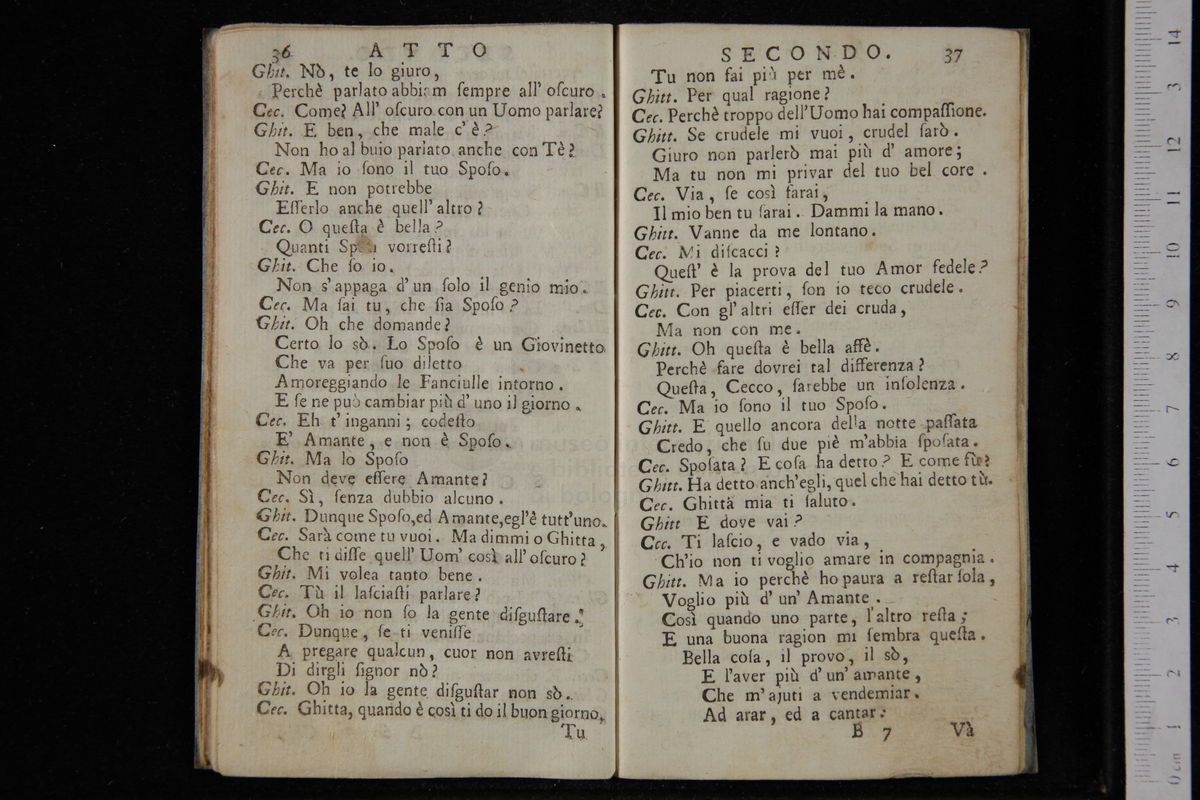 36 ATTO
Ghit. Nò, te lo giuro,
Perchè parlato abbiam ſempre all' oſcuro.
Cec. Come? All' oſcuro con un Uomo parlare?
Ghit. E ben, che male c' è?
Non ho al buio parlato anche con Tè?
Cec. Ma io ſono il tuo Spoſo.
Ghit. E non potrebbe
Eſſerlo anche quell' altro?
Cec. O queſta è bella?
Quanti vorreſti?
Ghit. Che ſo io.
Non s' appaga d' un ſolo il genio mio.
Cec. Ma ſai tu, che ſia Spoſo?
Ghit. Oh che domande?
Certo lo sò. Lo Spoſo è un Giovinetto
Che va per ſuo diletto
Amoreggiando le Fanciulle intorno.
E ſe ne può cambiar più d' uno il giorno.
Cec. Eh t' inganni; codeſto
E' Amante, e non è Spoſo.
Ghit. Ma lo Spoſo
Non deve eſſere Amante?
Cec. Sì, ſenza dubbio alcuno.
Ghit. Dunque Spoſo,ed Amante,egl'è tutt'uno.
Cec. Sarà come tu vuoi. Ma dimmi o Ghitta,
Che ti diſſe quell' Uom' così all' oſcuro?
Ghit. Mi volea tanto bene.
Cec. Tù il laſciaſti parlare?
Ghit. Oh io non ſo la gente diſguſtare.
Cec. Dunque, ſe ti veniſſe
A pregare qualcun, cuor non avreſti
Di dirgli ſignor nò?
Ghit. Oh io la gente diſguſtar non sò.
Cec. Ghitta, quando è così ti do il buon giorno,
Tu
SECONDO. 37
Tu non fai più per mè.
Ghitt. Per qual ragione?
Cec. Perchè troppo dell'Uomo hai compaſſione.
Ghitt. Se crudele mi vuoi, crudel ſarò.
Giuro non parlerò mai più d' amore;
Ma tu non mi privar del tuo bel core.
Cec. Via, ſe così farai,
Il mio ben tu ſarai. Dammi la mano.
Ghitt. Vanne da me lontano.
Cec. Mi diſcacci?
Queſt' è la prova del tuo Amor fedele?
Ghitt. Per piacerti, ſon io teco crudele.
Cec. Con gl' altri eſſer dei cruda,
Ma non con me.
Ghitt. Oh queſta è bella affè.
Perchè fare dovrei tal differenza?
Queſta, Cecco, ſarebbe un inſolenza.
Cec. Ma io ſono il tuo Spoſo.
Ghitt. E quello ancora della notte paſſata
Credo, che ſu due piè m'abbia ſpoſata.
Cec. Spoſata? E coſa ha detto? E come fù?
Ghitt. Ha detto anch'egli, quel che hai detto tù.
Cec. Ghittà mia ti ſaluto.
Ghitt E dove vai?
Cec. Ti laſcio, e vado via,
Ch'io non ti voglio amare in compagnia.
Ghitt. Ma io perchè ho paura a reſtar ſola,
Voglio più d' un' Amante.
Così quando uno parte, l'altro reſta;
E una buona ragion mi ſembra queſta.
Bella coſa, il provo, il sò,
E l'aver più d' un' amante,
Che m'ajuti a vendemiar.
Ad arar, ed a cantar:
B 7 Và
0 cm 1 2 3 4 5 6 7 8 9 10 11 12 3 14